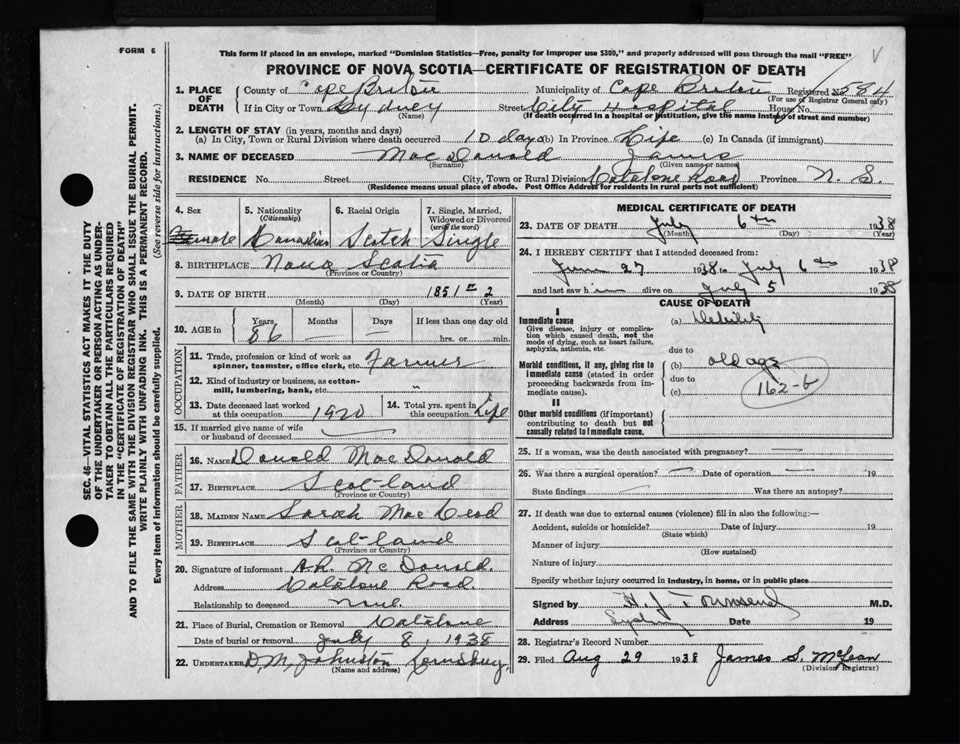 FORM 6
This form if placed in an envelope, marked "Dominion Statistics—Free, penalty for improper use $300," and properly addressed will pass through the mail "FREE"
PROVINCE OF NOVA SCOTIA—CERTIFICATE OF REGISTRATION OF DEATH
1. PLACE OF DEATH
County of Cape Breton Municipality of Cape Breton Registered No. 584
(For use of Registrar General only)
If in City or Town Sydney Street City Hospital House No.
(Name) (If death occurred in a hospital or institution, give the name instead of street and number)
2. LENGTH OF STAY (in years, months and days)
(a) In City, Town or Rural Division where death occurred 10 days (b) In Province Life (c) In Canada (if immigrant)
3. NAME OF DECEASED Mac Donald James
(Surname) (Given name or names)
RESIDENCE No. Street City, Town or Rural Division Catalone Road Province N. S.
(Residence means usual place of abode. Post Office Address for residents in rural parts not sufficient)
4. Sex 5. Nationality (Citizenship) 6. Racial Origin 7. Single, Married, Widowed or Divorced (write the word)
male Canadian Scotch Single
8. BIRTHPLACE Nova Scotia
(Province or Country)
9. DATE OF BIRTH 1851 - 2
(Month) (Day) (Year)
10. AGE in Years Months Days If less than one day old
86 — — hrs. or min.
OCCUPATION
11. Trade, profession or kind of work as spinner, teamster, office clerk, etc. Farmer
12. Kind of industry or business, as cotton-mill, lumbering, bank, etc. "
13. Date deceased last worked at this occupation 1920 14. Total yrs. spent in this occupation Life
15. If married give name of wife or husband of deceased
FATHER
16. NAME Donald Mac Donald
17. BIRTHPLACE Scotland
(Province or Country)
MOTHER
18. MAIDEN NAME Sarah Mac Leod
19. BIRTHPLACE Scotland
(Province or Country)
20. Signature of informant A.R. McDonald.
Address Catalone Road.
Relationship to deceased none.
21. Place of Burial, Cremation or Removal Catalone
Date of burial or removal July 8, 1938
22. UNDERTAKER D.M. Johnston Louisburg,
(Name and address)
MEDICAL CERTIFICATE OF DEATH
23. DATE OF DEATH July 6th 1938
(Month) (Day) (Year)
24. I HEREBY CERTIFY that I attended deceased from:
June 27 1938 to July 6th 1938
and last saw him alive on July 5 1938
CAUSE OF DEATH
I
Immediate cause (a) Debility
Give disease, injury or complication which caused death, not the mode of dying, such as heart failure, asphyxia, asthenia, etc.
due to
Morbid conditions, if any, giving rise to immediate cause (stated in order proceeding backwards from immediate cause).
(b) old age
due to
(c) 162-b
II
Other morbid conditions (if important) contributing to death but not causally related to immediate cause.
25. If a woman, was the death associated with pregnancy? —
26. Was there a surgical operation? — Date of operation — 19
State findings Was there an autopsy?
27. If death was due to external causes (violence) fill in also the following:—
Accident, suicide or homicide? Date of injury 19
(State which)
Manner of injury
(How sustained)
Nature of injury
Specify whether injury occurred in industry, in home, or in public place
Signed by H. J. Townsend M.D.
Address Sydney Date 19
28. Registrar's Record Number
29. Filed Aug 29 1938 James S. McLean
(Division Registrar)
SEC. 46—VITAL STATISTICS ACT MAKES IT THE DUTY
OF THE UNDERTAKER OR PERSON ACTING AS UNDERTAKER
TO OBTAIN ALL THE PARTICULARS REQUIRED
IN THE "CERTIFICATE OF REGISTRATION OF DEATH"
AND TO FILE THE SAME WITH THE DIVISION REGISTRAR WHO SHALL ISSUE THE BURIAL PERMIT.
WRITE PLAINLY WITH UNFADING INK. THIS IS A PERMANENT RECORD.
Every item of information should be carefully supplied. (See reverse side for instructions.)